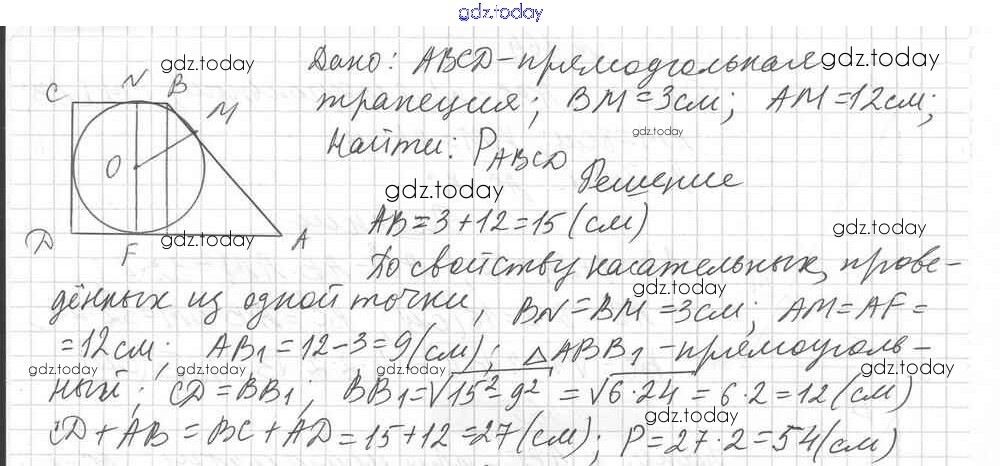 gdz.today
Дано: ABCD – прямоугольная gdz.today
gdz.today
трапеция; BM = 3см; AM = 12см;
gdz.today
Найти: P_ABCD
C N B M
O
D F A
gdz.today
gdz.today
Решение
AB = 3 + 12 = 15 (см)
gdz.today
По свойству касательных, прове-
gdz.today
дённых из одной точки, BN = BM = 3см; AM = AF =
= 12см; AB₁ = 12 – 3 = 9 (см); △ABB₁ – прямоуголь-
gdz.today gdz.today gdz.today gdz.today
ный; CD = BB₁; BB₁ = √15² – 9² = √6·24 = 6·2 = 12 (см)
gdz.today
CD + AB = BC + AD = 15 + 12 = 27 (см); P = 27·2 = 54 (см)